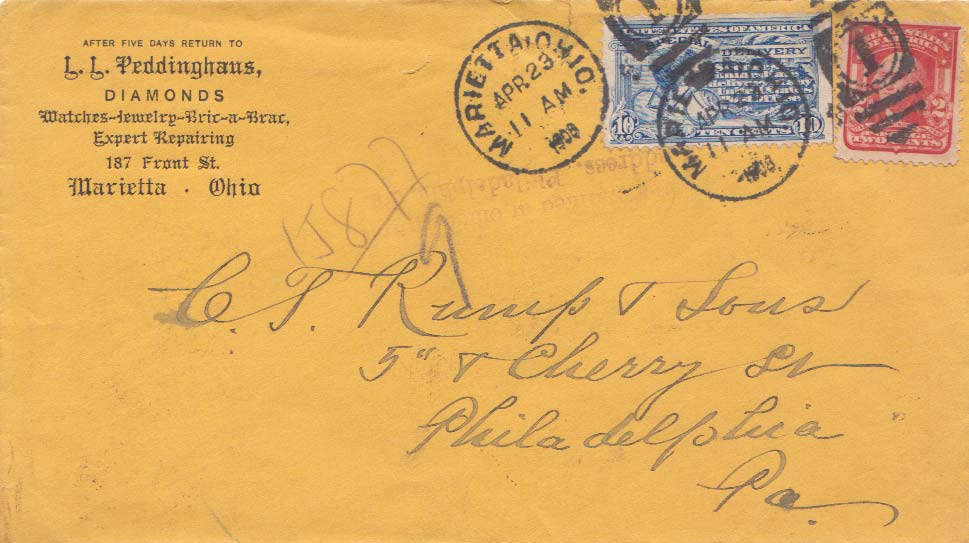 AFTER FIVE DAYS RETURN TO
L. L. Peddinghaus,
DIAMONDS
Watches-Jewelry-Bric-a-Brac,
Expert Repairing
187 Front St.
Marietta . Ohio
MARIETTA, OHIO.
APR 23
11 AM
1908
UNITED STATES OF AMERICA
SPECIAL DELIVERY
10 TEN CENTS 10
MARIETTA, OHIO.
APR 23
11 AM
1908
UNITED STATES
OF AMERICA
2
TWO CENTS
address, Philadelphia
C. F. Rumpp & Sons
5" & Cherry St
Philadelphia
Pa.